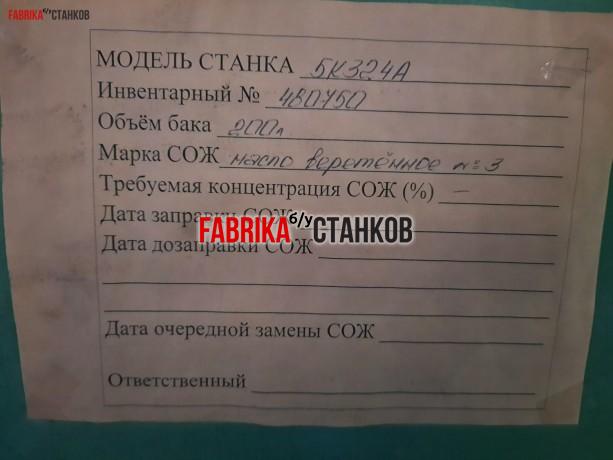 FABRIKA б/у СТАНКОВ
МОДЕЛЬ СТАНКА 5К324А
Инвентарный № 480750
Объём бака 200л
Марка СОЖ масло веретённое №3
Требуемая концентрация СОЖ (%) –
Дата заправки СОЖ
FABRIKA б/у СТАНКОВ
Дата дозаправки СОЖ
Дата очередной замены СОЖ
Ответственный